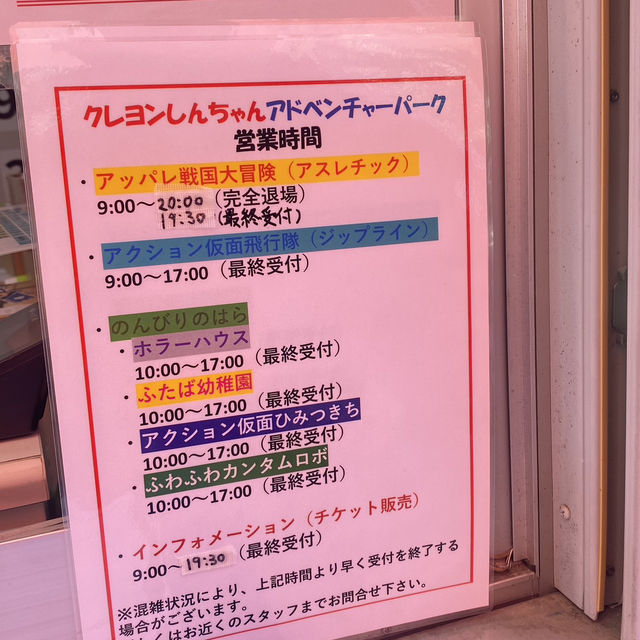 クレヨンしんちゃんアドベンチャーパーク
営業時間
・アッパレ戦国大冒険（アスレチック）
9:00～20:00（完全退場）
19:30（最終受付）
・アクション仮面飛行隊（ジップライン）
9:00～17:00（最終受付）
・のんびりのはら
・ホラーハウス
10:00～17:00（最終受付）
・ふたば幼稚園
10:00～17:00（最終受付）
・アクション仮面ひみつきち
10:00～17:00（最終受付）
・ふわふわカンタムロボ
10:00～17:00（最終受付）
・インフォメーション（チケット販売）
9:00～19:30（最終受付）
※混雑状況により、上記時間より早く受付を終了する
場合がございます。
くはお近くのスタッフまでお問合せ下さい。